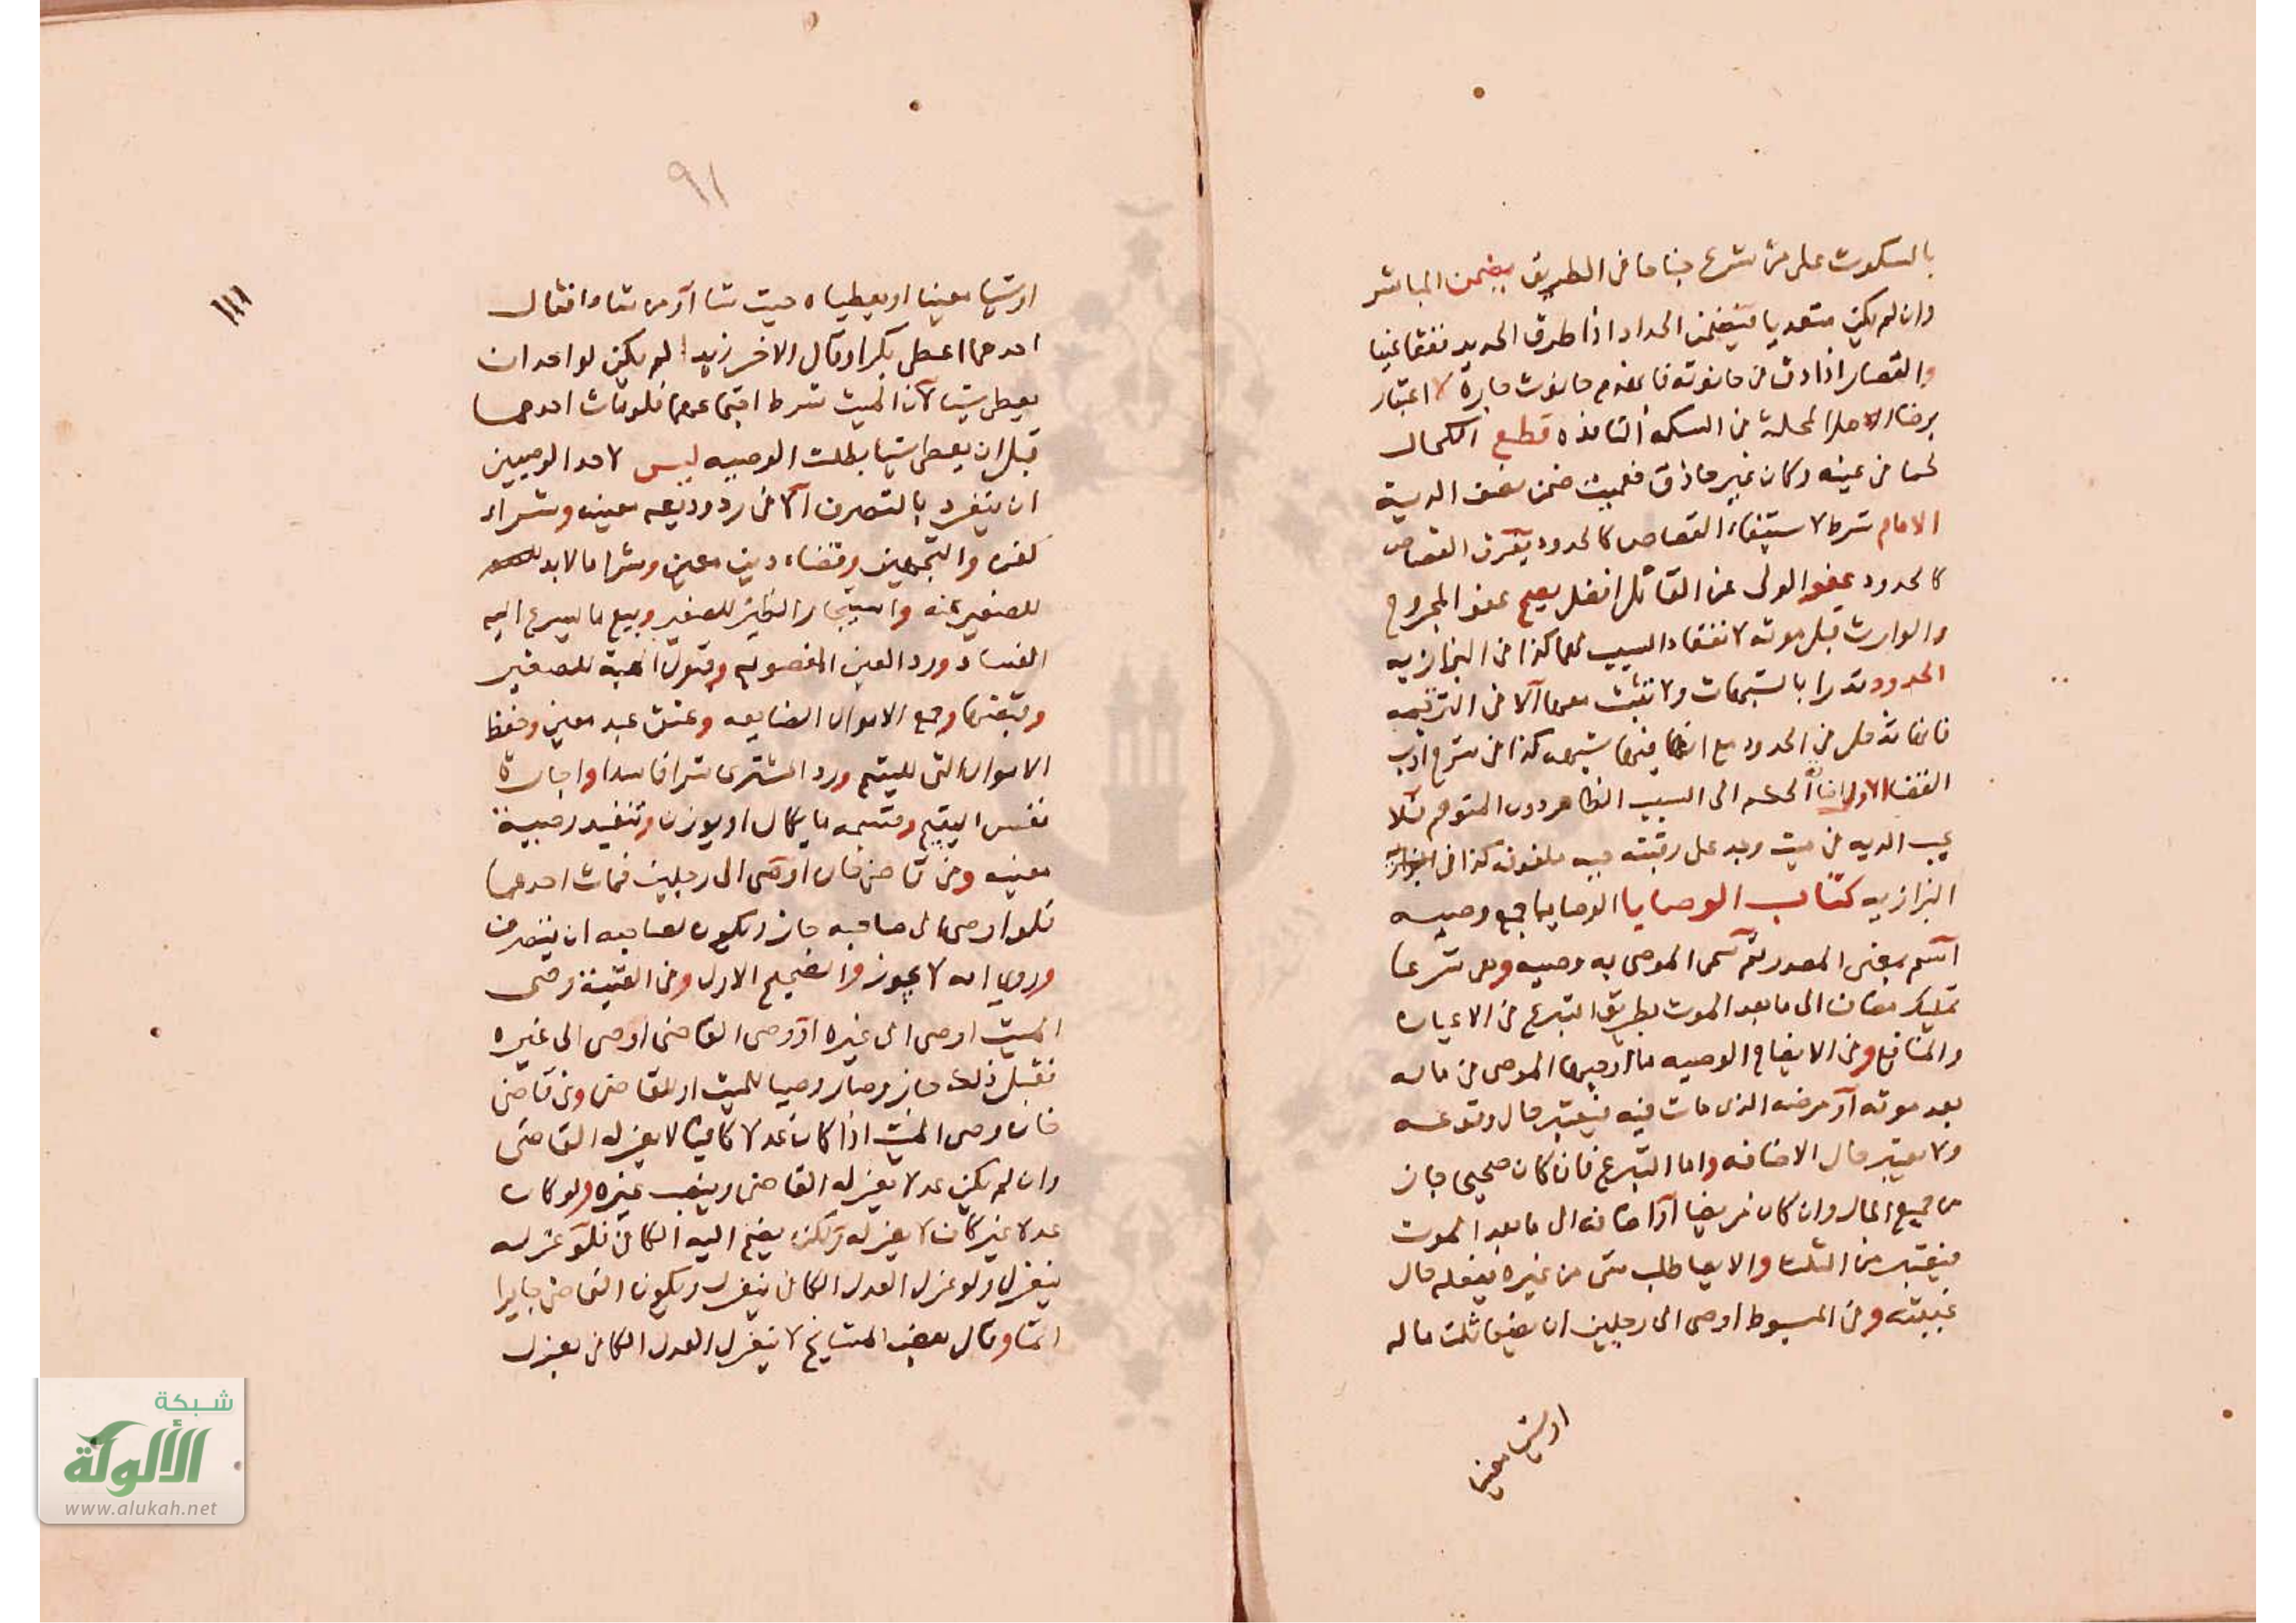 بالسكوت على من شرع جناحا في الطريق يضمن المباشر
وان لم يكن متعديا فيضمن الحداد اذا طرق الحديد ففقا عينا
والقصار اذا دق في حانوته فانهدم حانوت جاره لا اعتبار
برضا اهل المحلة في السكه النافذه قطع الكحال
لحما من عينه وكان غير حاذق فعميت ضمن نصف الدية
الامام شرط لاستيفاء القصاص كالحدود يفرق القصاص
كالحدود عفو الولى عن القاتل افضل يصح عفو المجروح
والوارث قبل موته لانعقاد السبب لهما كذا في البزازيه
الحدود تدرا بالشبهات ولا تثبت معها الا في الترجمه
فانها تدخل في الحدود مع ان فيها شبهه كذا في شرح ادب
القضا الاول اضافة الحكم الى السبب الظاهر دون المتوهم فلا
يجب الديه في ميت وجد على رقبته حيه ملفوفه كذا في
البزازيه كتاب الوصايا الوصايا جمع وصيه
اسم بمعنى المصدر ثم سمى الموصى به وصيه وهى شرعا
تمليك مضاف الى ما بعد الموت بطريق التبرع في الاعيان
والمنافع وفى الايضاح الوصيه ما اوجبها الموصى في ماله
بعد موته او مرضه الذى مات فيه فيعتبر حال وقوعه
ولا يعتبر حال الاضافه واما التبرع فان كان صحيحا جاز
من جميع المال وان كان مريضا او اضافه الى ما بعد الموت
فيعتبر من الثلث والايصا طلب شى من غيره يفعله حال
غيبته وفى المبسوط اوصى الى رجلين ان يضعا ثلث ماله
اوشيا معينا
٩١
ااا
اوشيا معينا او يعطياه حيث شا او من شاء فقال
احدهما اعطى بكرا وقال الاخر زيدا لم يكن لواحد ان
يعطى شيا لان الميت شرط اجتماعهما فلو مات احدهما
قبل ان يعطى شيا بطلت الوصيه ليس لاحد الوصيين
ان ينفرد بالتصرف الا في رد وديعه معينه وشراء
كفن والتجهيز وقضاء دين معين وشرا ما لابد
للصغير منه واستيجار الظئر للصغير وبيع ما يسرع اليه
الفساد ورد العين المغصوبه وقبول الهبة للصغير
وقبضها وجمع الاموال الضايعه وعتق عبد معين وحفظ
الاموال التى لليتيم ورد المشترى شرا فاسدا واجارة
نفس اليتيم وقسمه ما يكال او يوزن وتنفيذ وصية
معينه وفى قاضى خان اوصى الى رجلين فمات احدهما
فلو اوصى الى صاحبه جاز ويكون لصاحبه ان يتصرف
وروي انه لا يجوز والصحيح الاول وفى القنية وصى
الميت اوصى الى غيره او وصى القاضى اوصى الى غيره
فقبل ذلك جاز وصار وصيا للميت او للقاضى وفى قاضى
خان وصى الميت اذا كان عدلا كافيا لا يعزله القاضى
وان لم يكن عدلا يعزله القاضى وينصب غيره ولو كان
عدلا غير كاف لا يعزله ولكن يضم اليه الكافى فلو عزله
ينعزل ولو عزل العدل الكافى ينعزل ويكون القاضى جايرا
اثما وقال بعض المشايخ لا ينعزل العدل الكافى بعزل
شبكة
الألوكة
www.alukah.net